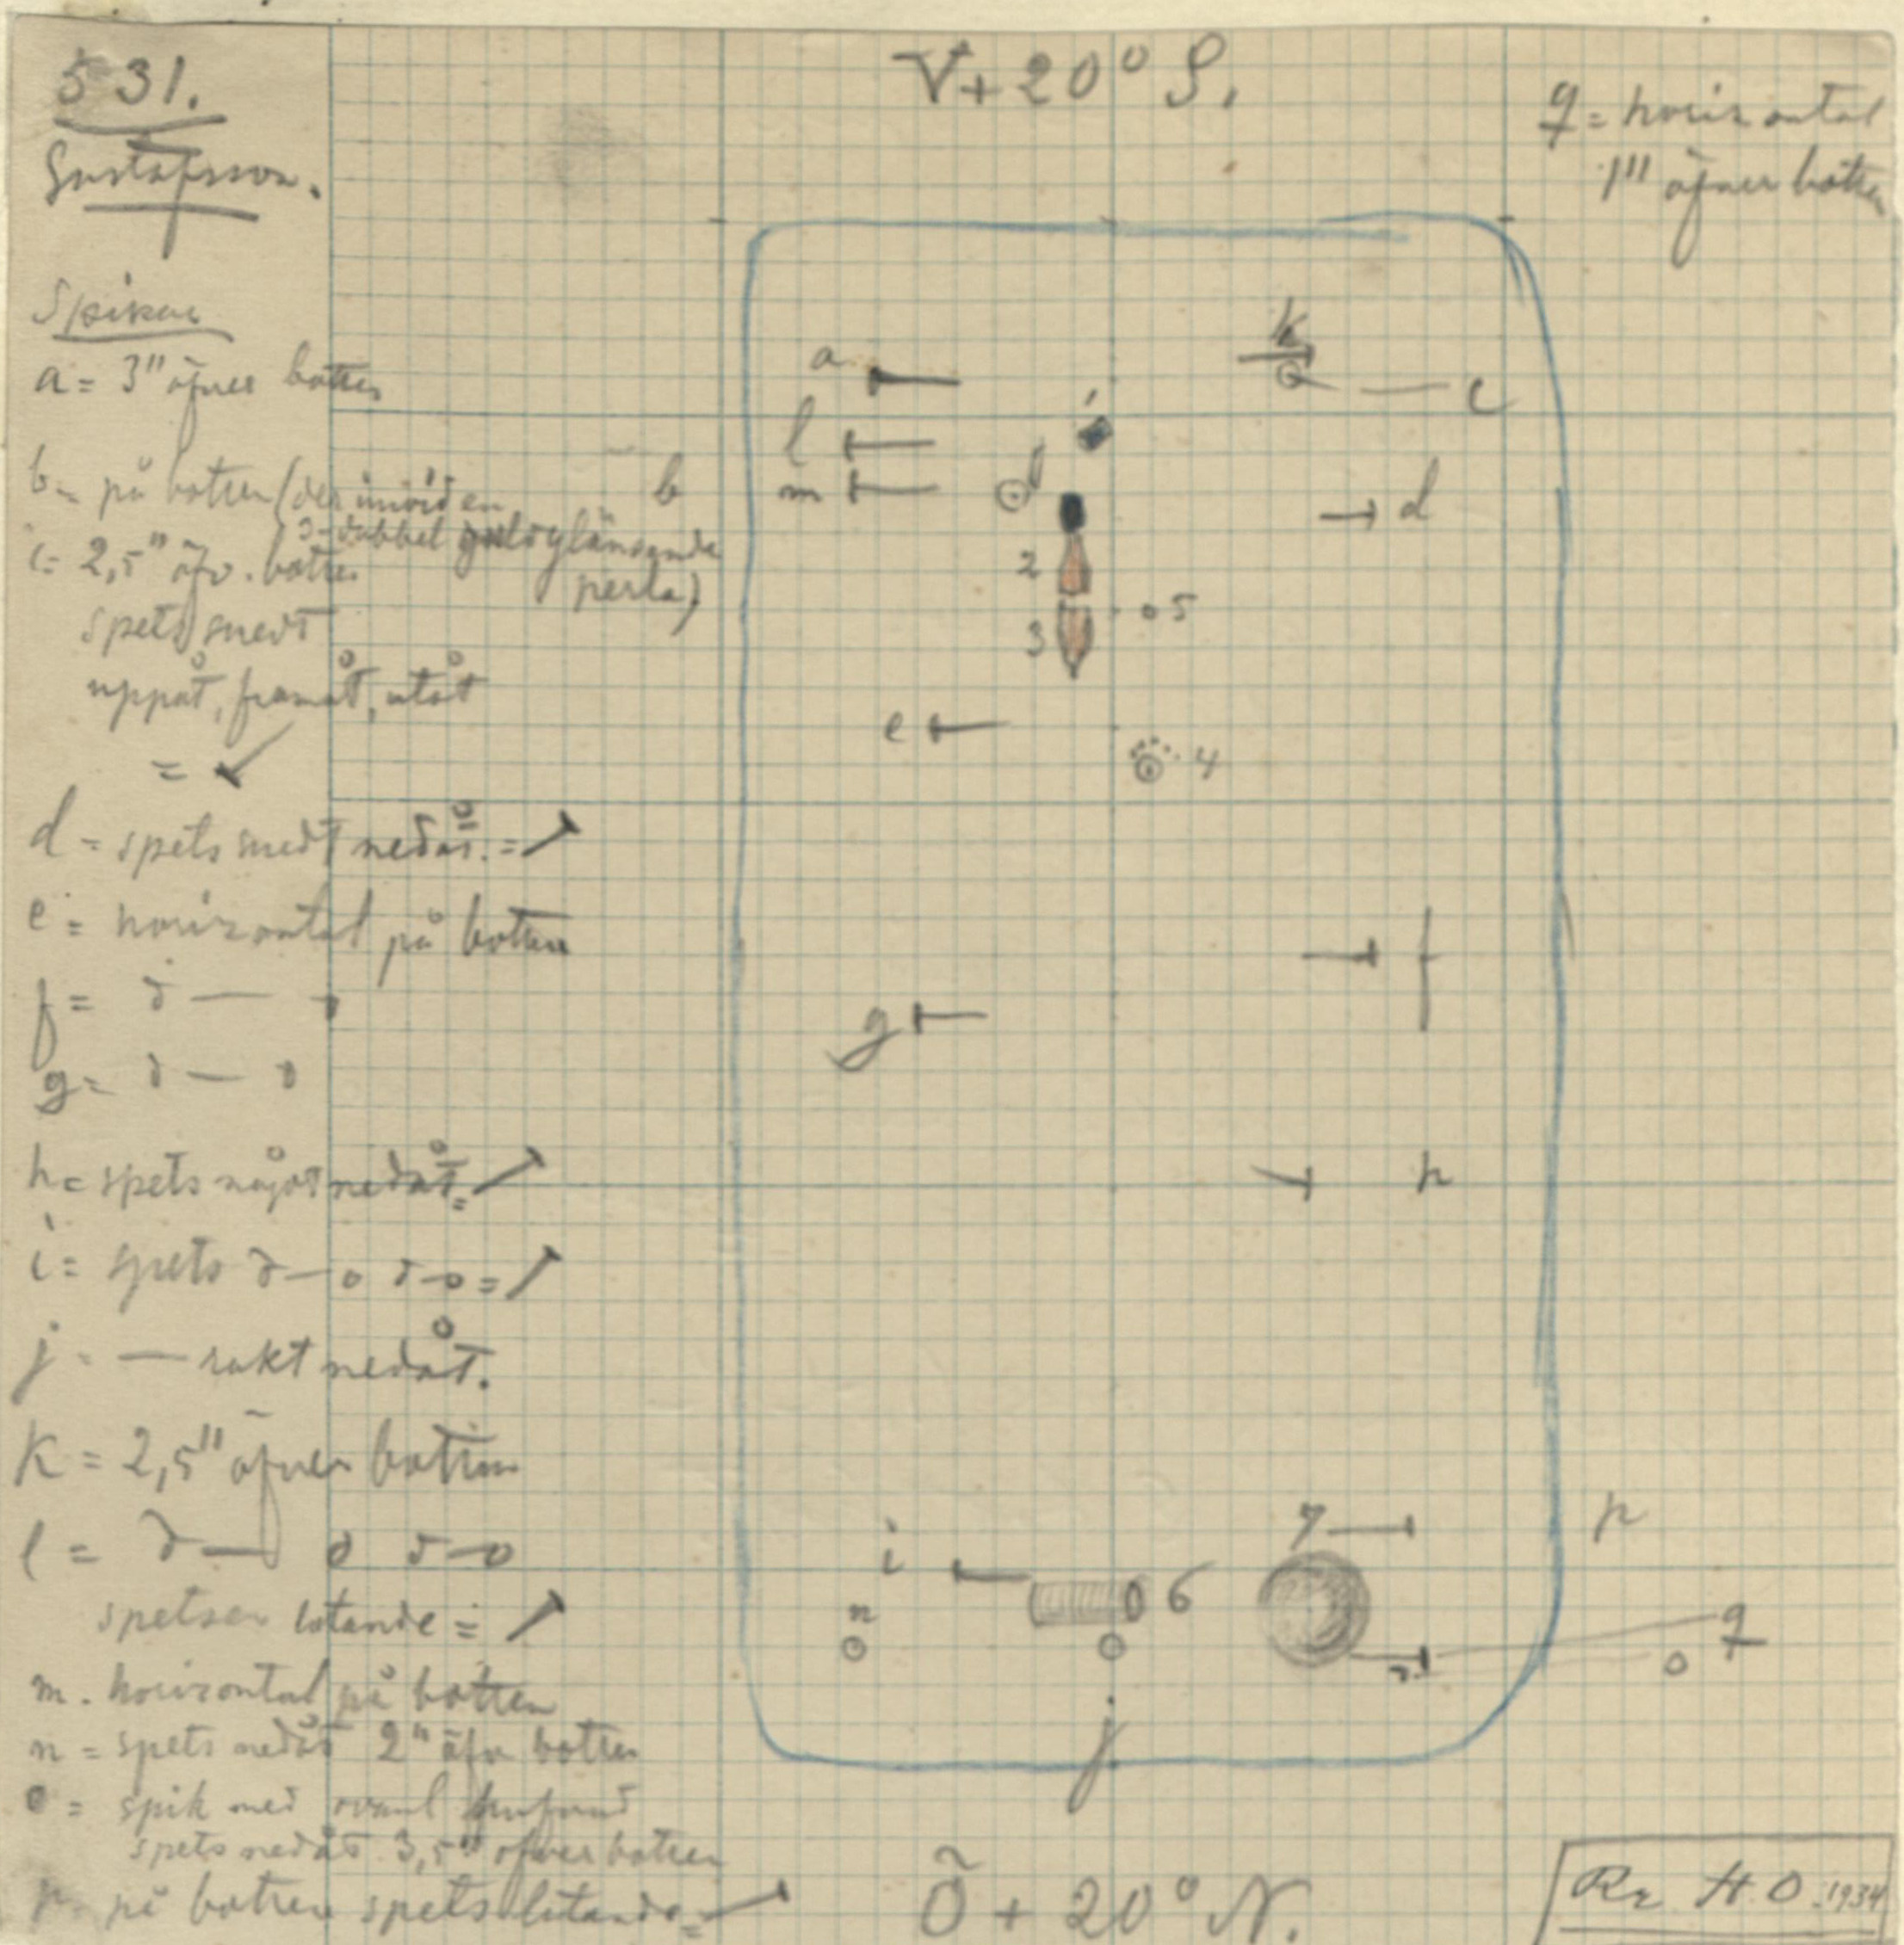 531.
Gustafsson.
V + 20° S.
q = horizontal
1''' öfver botten
Spikar
a = 3" öfver botten
b = på botten (der invid en
3-dubbel gulöglänsande
perla)
c = 2,5" öfv. botten
spets snedt
uppåt, framåt, utåt
=
d = spets snedt nedåt. =
e = horizontal på botten
f = d — o
g = d — o
h = spets något nedåt =
i = spets d—o d—o =
j = — rakt nedåt.
k = 2,5" öfver botten
l = d — o d—o
spetsen lutande =
m = horizontal på botten
n = spets nedåt 2" öfv botten
o = spik med ovanl hufvud
spets nedåt 3,5" öfver botten
p = på botten spets lutande =
a
k
c
l
1
b
m
b
d
2
5
3
e
4
f
g
h
7
p
i
6
n
q
o
j
Ö + 20° N.
Rr H.O. 1934